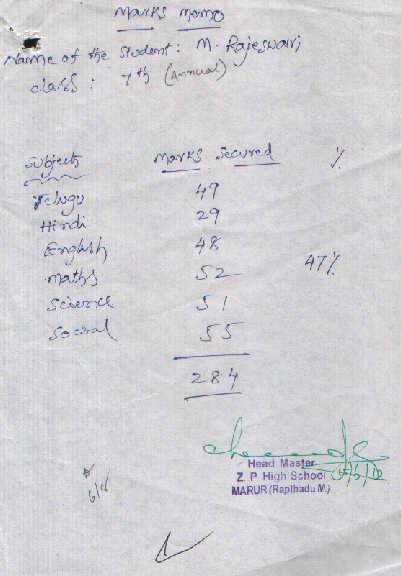 Marks Memo
Name of the Student: M. Rajeswari
Class: 7th (Annual)
Subjects Marks Secured %
Telugu 49
Hindi 29
English 48
Maths 52 47%
Science 51
Social 55
284
Head Master
Z. P. High School
MARUR (Rapthadu M.)